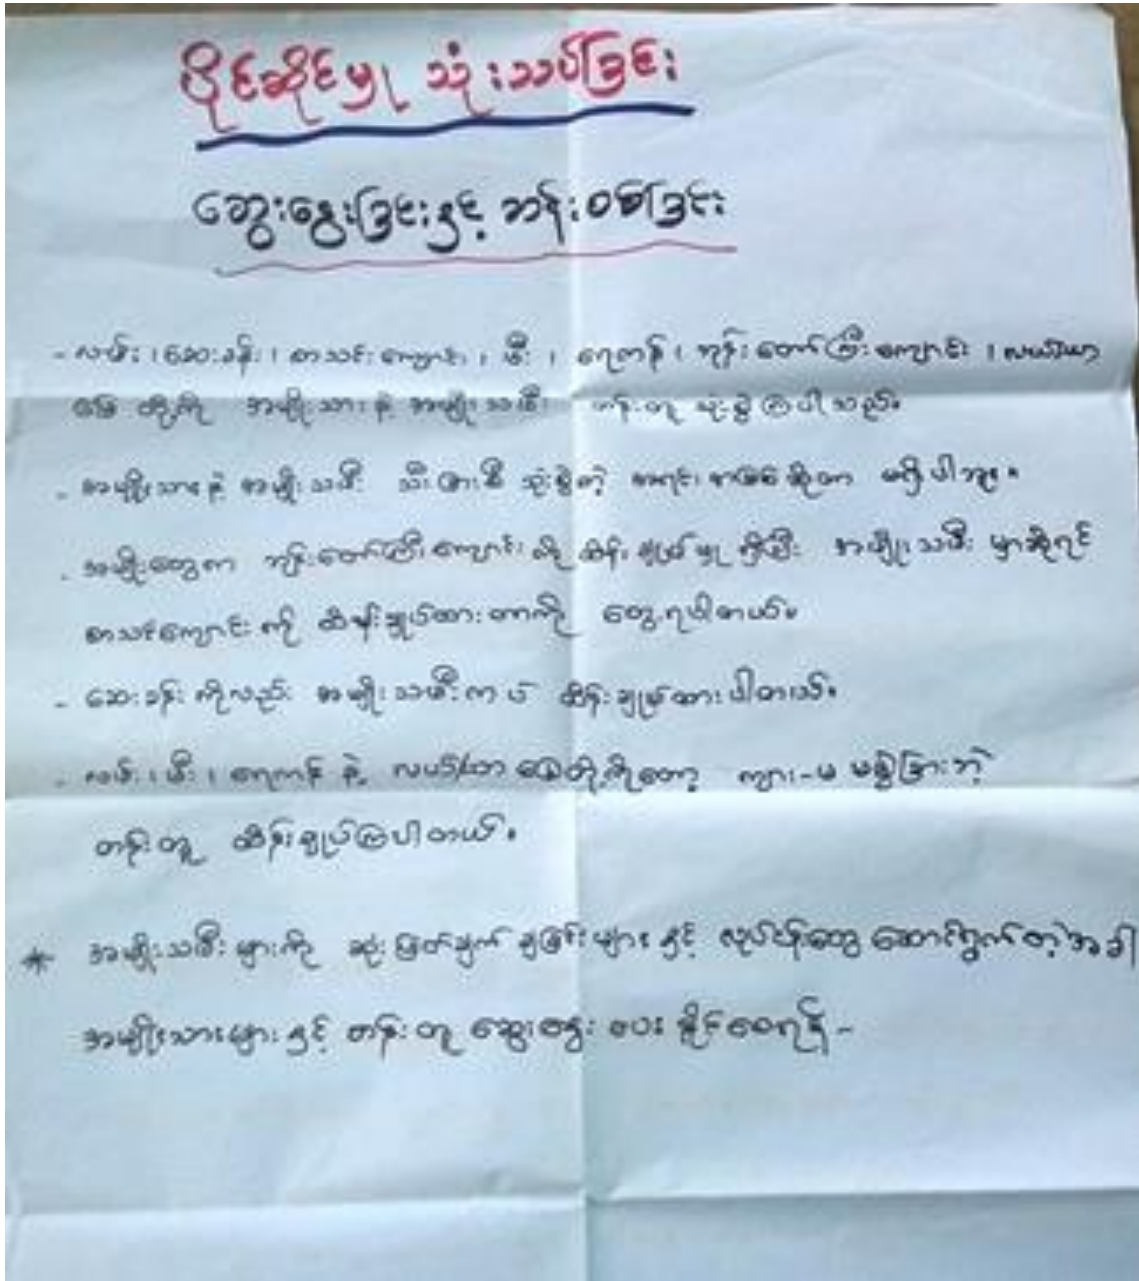 ပိုင်ဆိုင်မှု သုံးသပ်ခြင်း
ဆွေးနွေးခြင်းနှင့် ဘန်းစစ်ခြင်း
- လမ်း ၊ ဆေးခန်း ၊ စာသင်ကျောင်း ၊ မီး ၊ ရေကန် ၊ ဘုန်းတော်ကြီးကျောင်း ၊ လယ်ယာ
မြေ တို့ကို အမျိုးသားနဲ့ အမျိုးသမီး တန်းတူ သုံးစွဲကြပါသည်။
- အမျိုးသားနဲ့ အမျိုးသမီး သီးခြားစီ သုံးစွဲတဲ့ အရင်းအမြစ်ဆိုတာ မရှိပါဘူး။
- အမျိုးတွေက ဘုန်းတော်ကြီးကျောင်း ကို ထိန်းချုပ်မှု ရှိပြီး အမျိုးသမီး မှာဆိုရင်
စာသင်ကျောင်း ကို ထိန်းချုပ်ထားတာကို တွေ့ရပါတယ်။
- ဆေးခန်း ကိုလည်း အမျိုးသမီးကပဲ ထိန်းချုပ်ထားပါတယ်။
- လမ်း ၊ မီး ၊ ရေကန် နဲ့ လယ်ယာ မြေတို့ကိုတော့ ကျား-မ မခွဲခြားဘဲ
တန်းတူ ထိန်းချုပ်ကြပါတယ်။
* အမျိုးသမီးများကို ဆုံးဖြတ်ချက် ချခြင်းများ နှင့် လုပ်ငန်းတွေ ဆောင်ရွက်တဲ့အခါ
အမျိုးသားများနှင့် တန်းတူ ဆွေးနွေး ပေးနိုင်စေရန် -